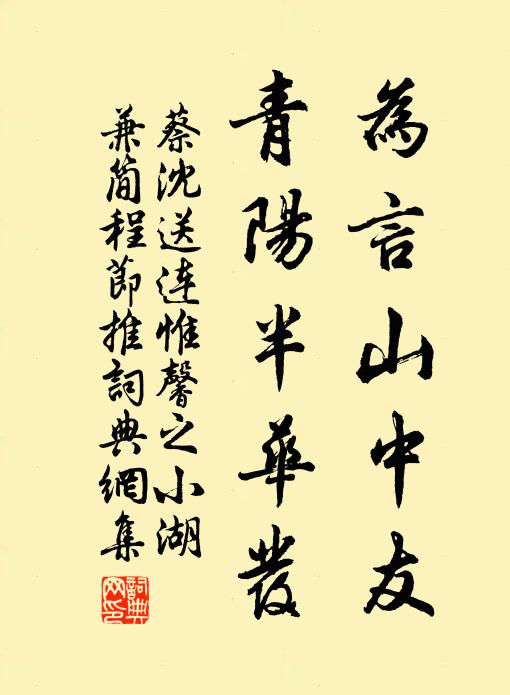 為言山中友
青陽半華發
蔡沈送連惟馨之小湖
兼簡程節推詞典網集